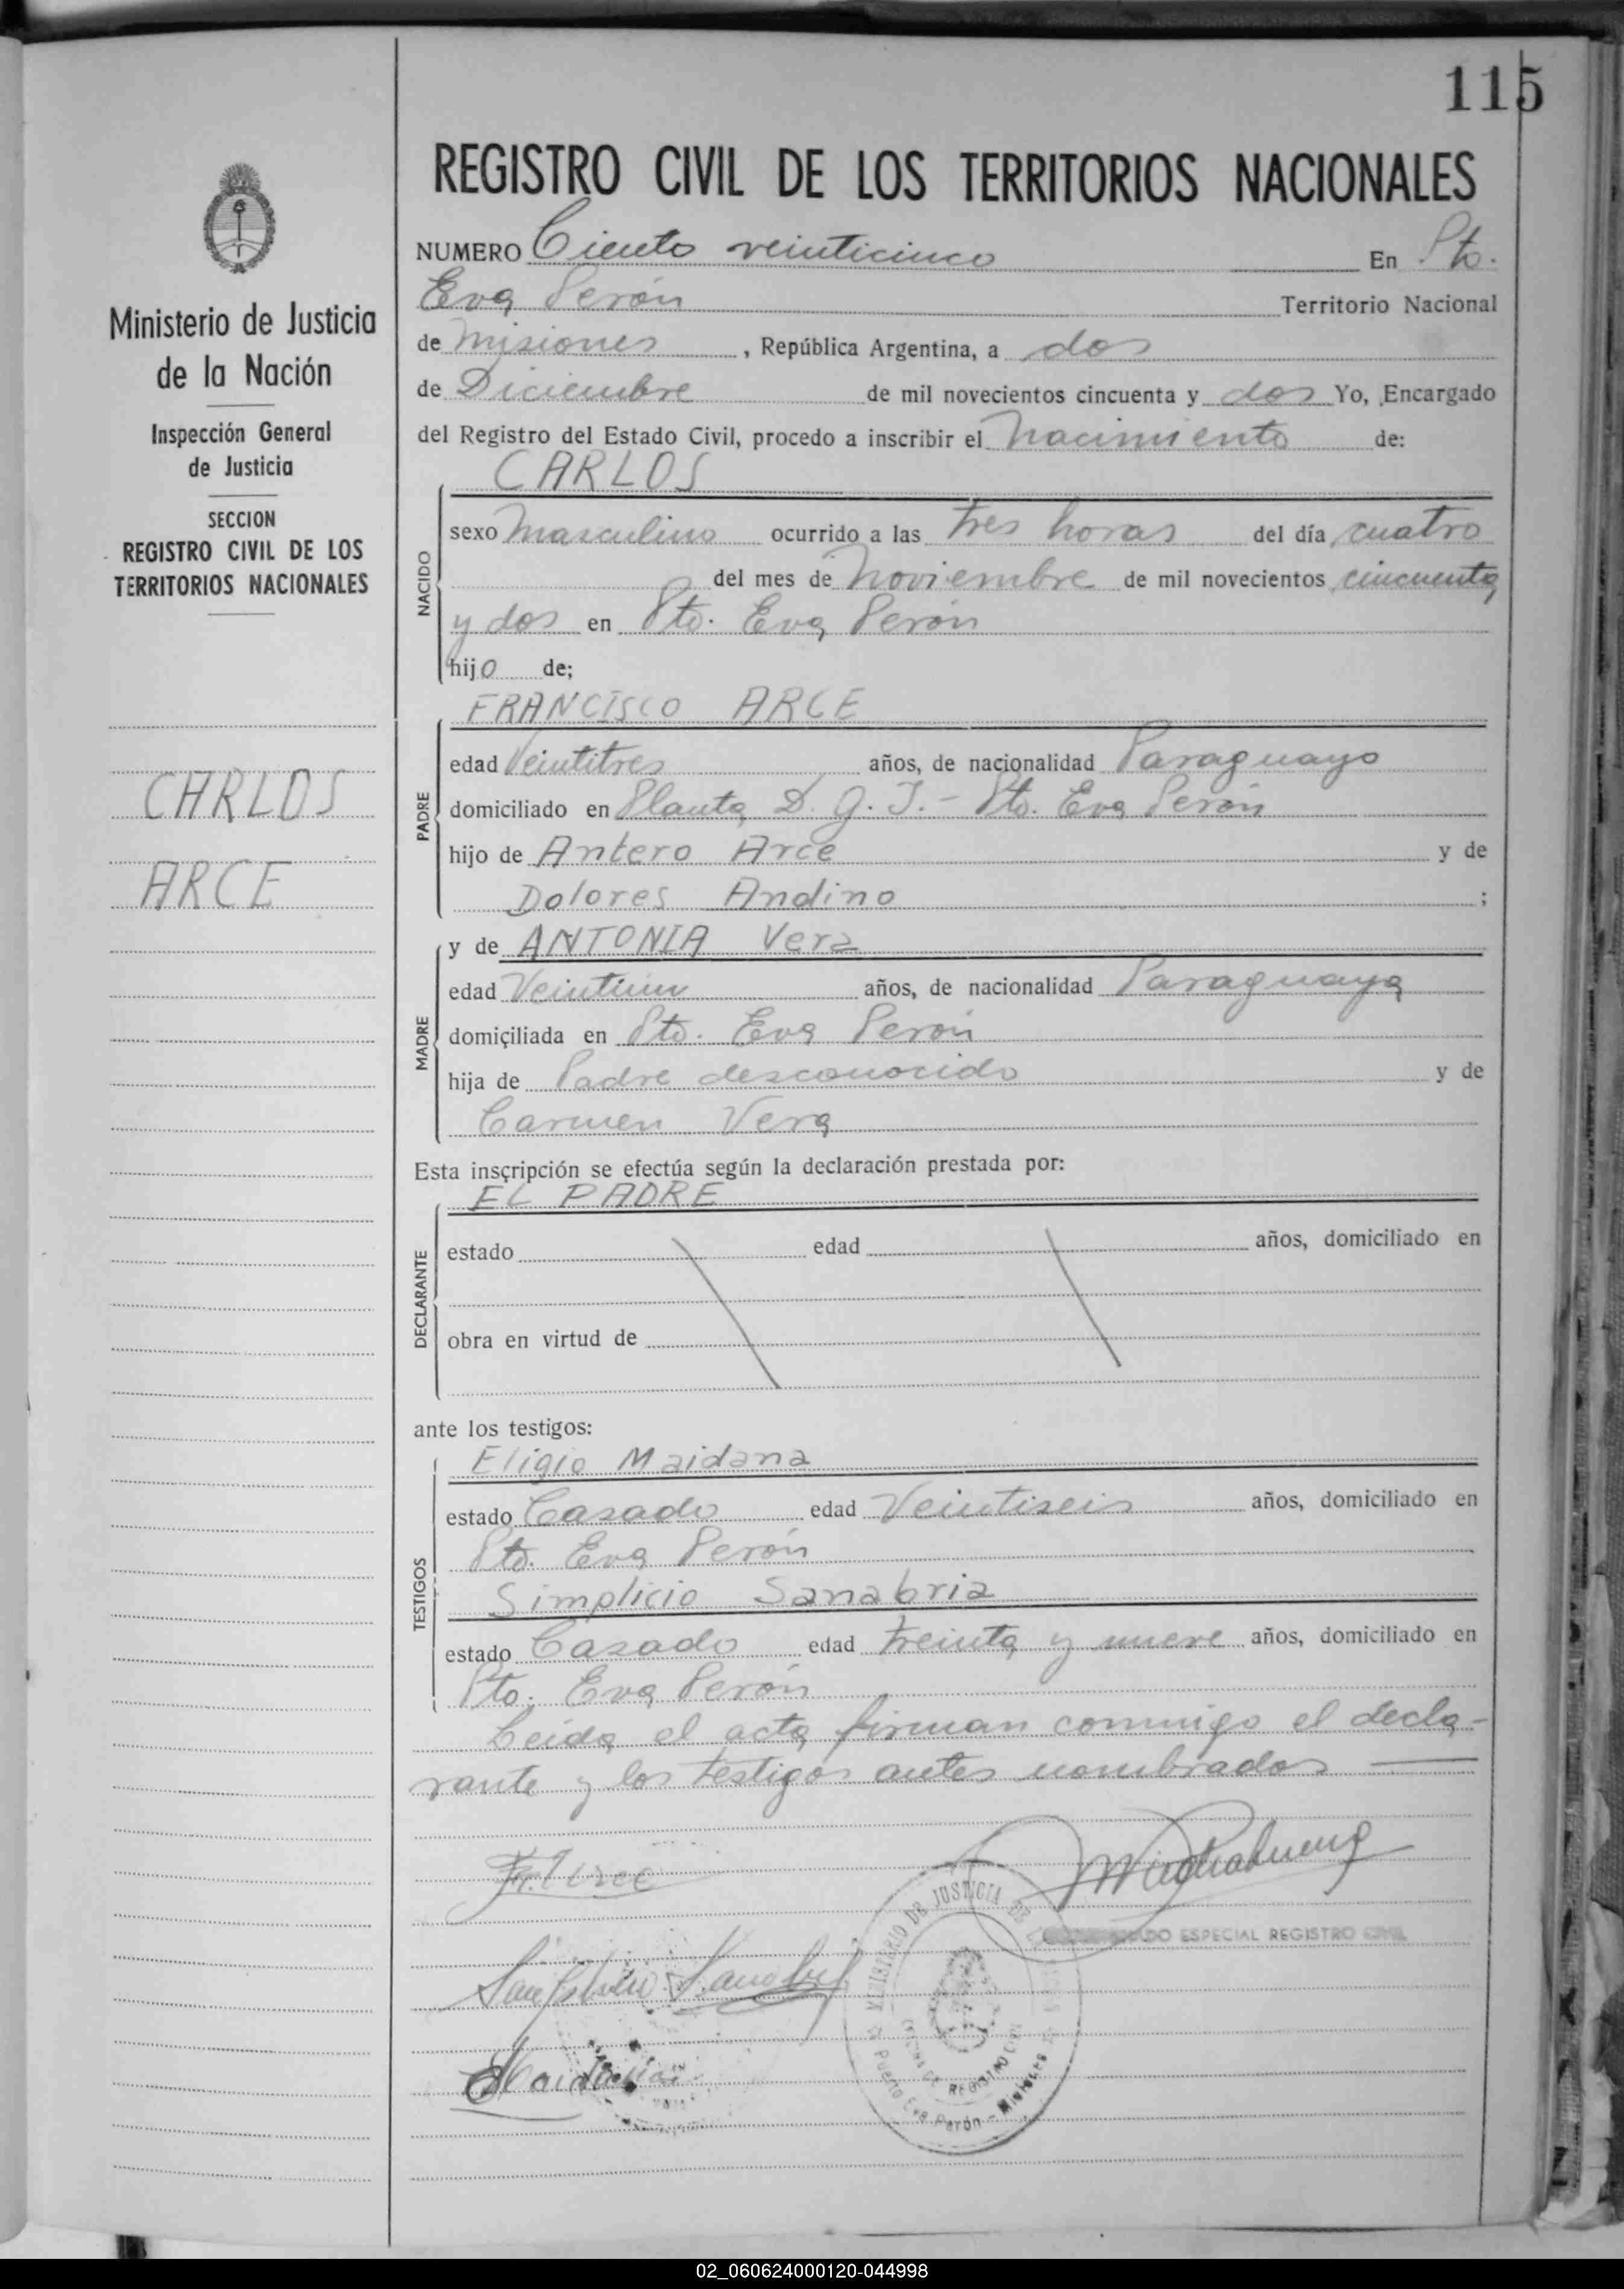 115
REGISTRO CIVIL DE LOS TERRITORIOS NACIONALES
NUMERO Ciento veinticinco En Pto.
Eva Perón Territorio Nacional
de Misiones, República Argentina, a dos
de Diciembre de mil novecientos cincuenta y dos Yo, Encargado
del Registro del Estado Civil, procedo a inscribir el nacimiento de:
CARLOS
NACIDO
sexo Masculino ocurrido a las tres horas del día cuatro
del mes de Noviembre de mil novecientos cincuenta
y dos en Pto. Eva Perón
hijo de;
FRANCISCO ARCE
PADRE
edad Veintitres años, de nacionalidad Paraguayo
domiciliado en Planta D. G. I. - Pto. Eva Perón
hijo de Antero Arce y de
Dolores Andino ;
y de ANTONIA Vera
MADRE
edad Veintiun años, de nacionalidad Paraguaya
domiciliada en Pto. Eva Perón
hija de Padre desconocido y de
Carmen Vera
Esta inscripción se efectúa según la declaración prestada por:
EL PADRE
DECLARANTE
estado edad años, domiciliado en
obra en virtud de
ante los testigos:
Eligio Maidana
TESTIGOS
estado Casado edad Veintiseis años, domiciliado en
Pto. Eva Perón
Simplicio Sanabria
estado Casado edad treinta y nueve años, domiciliado en
Pto. Eva Perón
Leida el acta firman conmigo el decla-
rante y los testigos antes nombrados
Fr. Arce
ESPECIAL REGISTRO CIVIL
MINISTERIO DE JUSTICIA DE
REGISTRO
Puerto Eva Perón - Misiones
Ministerio de Justicia
de la Nación
Inspección General
de Justicia
SECCION
REGISTRO CIVIL DE LOS
TERRITORIOS NACIONALES
CARLOS
ARCE
02_060624000120-044998